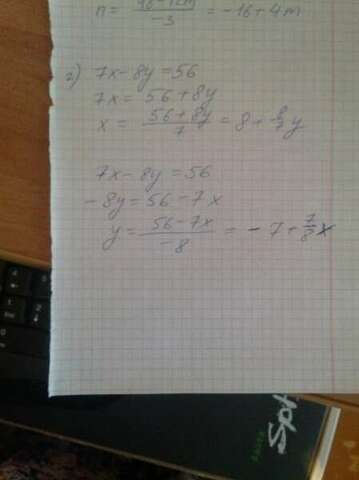 n = \frac{48-12m}{-3} = -16+4m
г) 7x-8y=56
7x = 56+8y
x = \frac{56+8y}{7} = 8+\frac{8}{7}y
7x-8y=56
-8y=56-7x
y = \frac{56-7x}{-8} = -7+\frac{7}{8}x